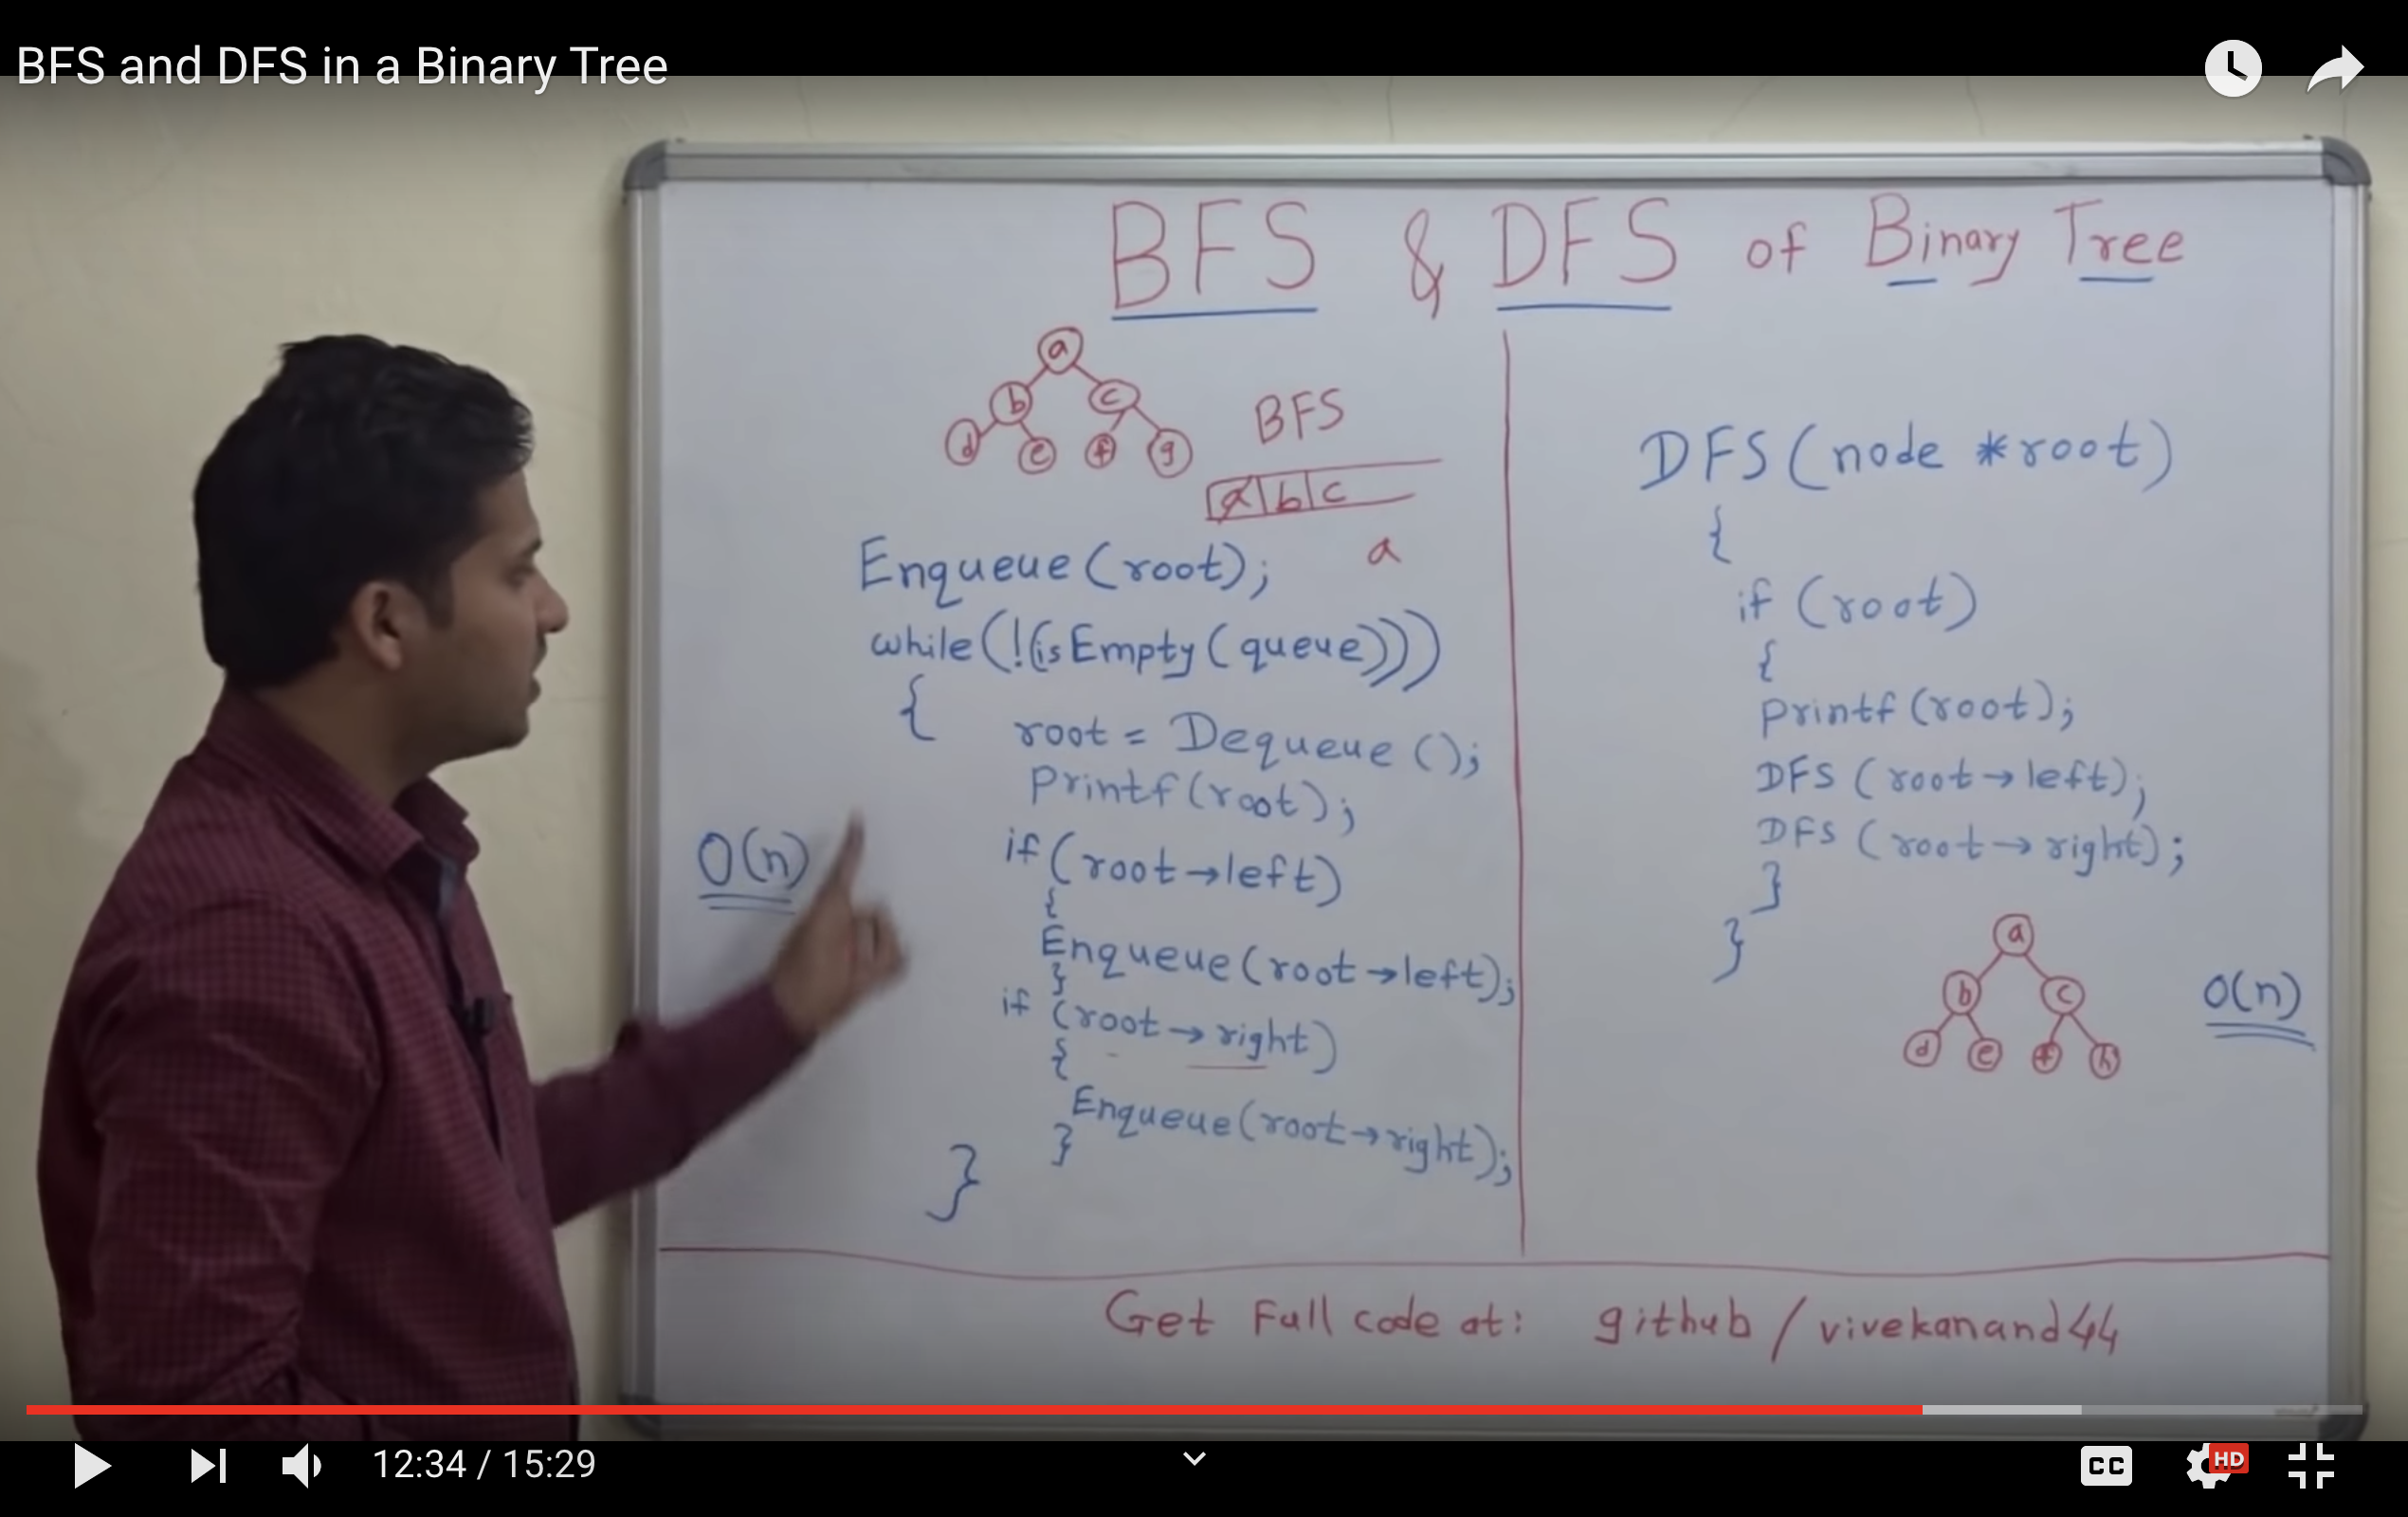 BFS and DFS in a Binary Tree
BFS & DFS of Binary Tree
a
b c
d e f g
BFS
a b c
a
Enqueue(root);
while(!(isEmpty(queue)))
{
root = Dequeue();
Printf(root);
O(n)
if(root→left)
{
Enqueue(root→left);
}
if (root→right)
{
Enqueue(root→right);
}
}
DFS(node *root)
{
if (root)
{
Printf(root);
DFS (root→left);
DFS (root→right);
}
}
a
b c
d e f h
O(n)
Get Full code at: github/vivekanand44
12:34 / 15:29
CC
HD